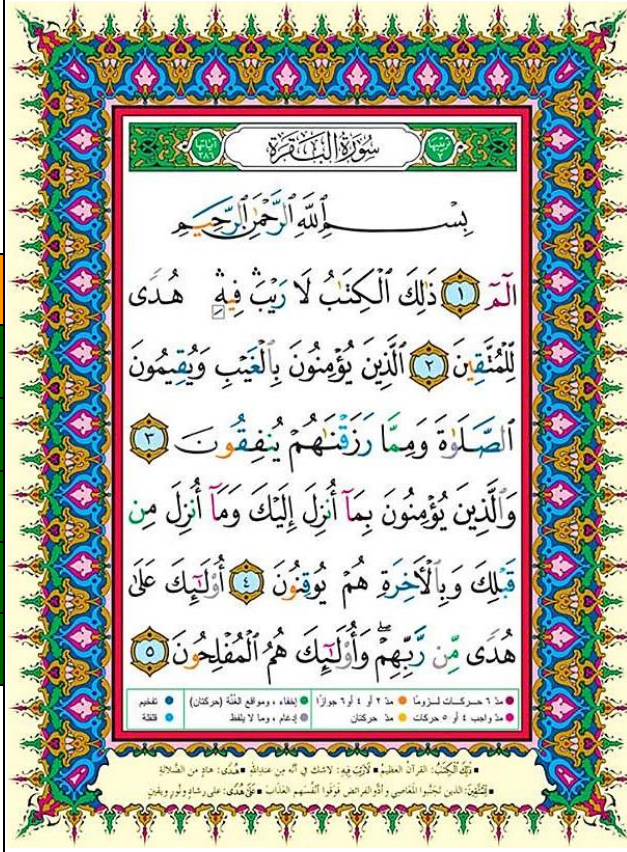 ترتيبها ٢ سُورَةُ الْبَقَرَةِ آياتها ٢٨٦
بِسْمِ ٱللَّهِ ٱلرَّحْمَٰنِ ٱلرَّحِيمِ
الٓمٓ ١ ذَٰلِكَ ٱلْكِتَٰبُ لَا رَيْبَ ۛ فِيهِ ۛ هُدًى
لِّلْمُتَّقِينَ ٢ ٱلَّذِينَ يُؤْمِنُونَ بِٱلْغَيْبِ وَيُقِيمُونَ
ٱلصَّلَوٰةَ وَمِمَّا رَزَقْنَٰهُمْ يُنفِقُونَ ٣
وَٱلَّذِينَ يُؤْمِنُونَ بِمَآ أُنزِلَ إِلَيْكَ وَمَآ أُنزِلَ مِن
قَبْلِكَ وَبِٱلْأَخِرَةِ هُمْ يُوقِنُونَ ٤ أُو۟لَٰٓئِكَ عَلَىٰ
هُدًى مِّن رَّبِّهِمْ ۖ وَأُو۟لَٰٓئِكَ هُمُ ٱلْمُفْلِحُونَ ٥
مدّ ٦ حركات لزومًا مدّ ٢ أو ٤ أو ٦ جوازًا إخفاء، ومواقع الغُنَّة (حركتان) تفخيم
مدّ واجب ٤ أو ٥ حركات مدّ حركتان إدغام، وما لا يُلفظ قلقلة
ذَٰلِكَ ٱلْكِتَٰبُ: القرآن العظيم لَا رَيْبَ فِيهِ: لاشك في أنّه مِن عندالله هُدًى: هادٍ من الضّلالة
لِّلْمُتَّقِينَ: الذين تجنّبوا المعاصي وأدّوا الفرائض فوقَوا أنفسهم العذاب عَلَىٰ هُدًى: على رشادٍ ونورٍ ويقينٍ